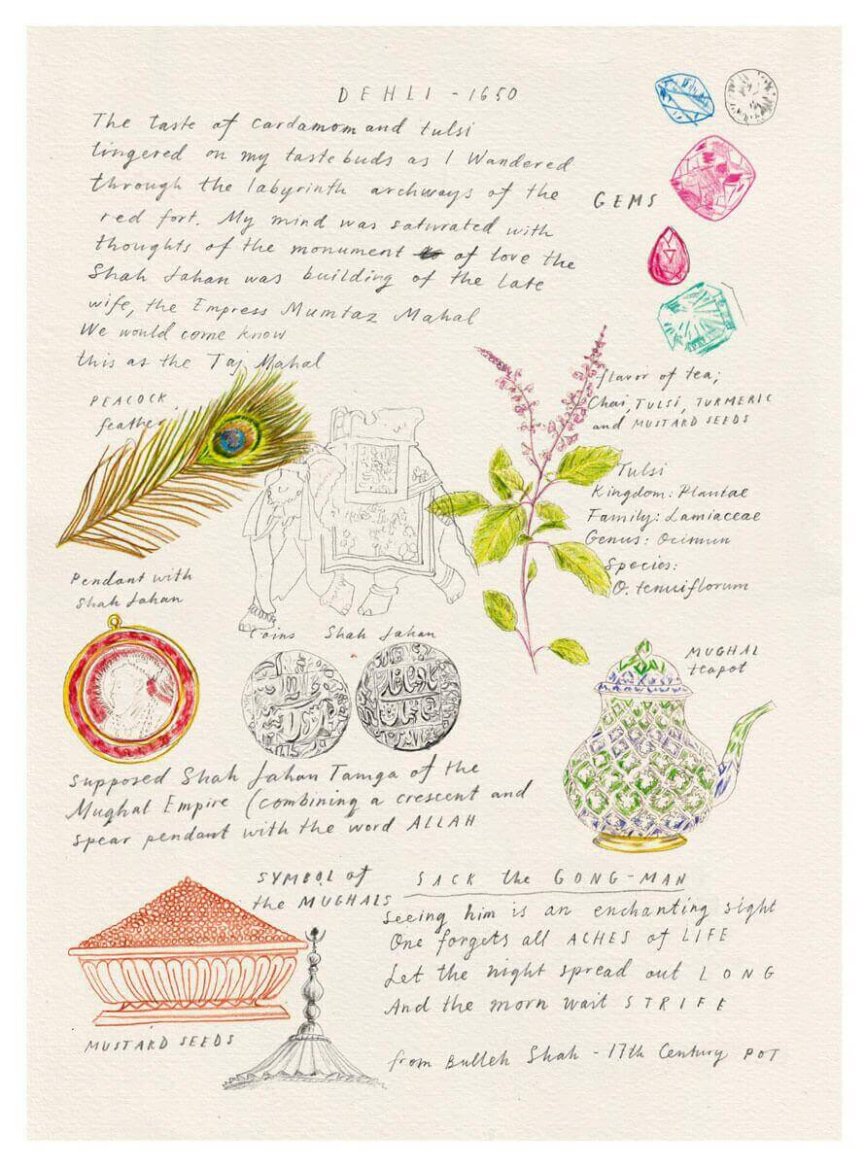 DEHLI - 1650
The taste of cardamom and tulsi
lingered on my tastebuds as I Wandered
through the labyrinth archways of the
red fort. My mind was saturated with
thoughts of the monument of love the
Shah Jahan was building of the late
wife, the Empress Mumtaz Mahal
We would come know
this as the Taj Mahal
GEMS
PEACOCK
feather
flavor of tea;
Chai, TULSI, TURMERIC
and MUSTARD SEEDS
Tulsi
Kingdom: Plantae
Family: Lamiaceae
Genus: Ocimun
Species:
O. tenuiflorum
Pendant with
Shah Jahan
Coins Shah Jahan
MUGHAL
teapot
supposed Shah Jahan Tamga of the
Mughal Empire (combining a crescent and
spear pendant with the word ALLAH
SYMBOL of
the MUGHALS
MUSTARD SEEDS
SACK the GONG-MAN
Seeing him is an enchanting sight
One forgets all ACHES of LIFE
Let the night spread out LONG
And the morn wait STRIFE
from Bulleh Shah - 17th Century POT